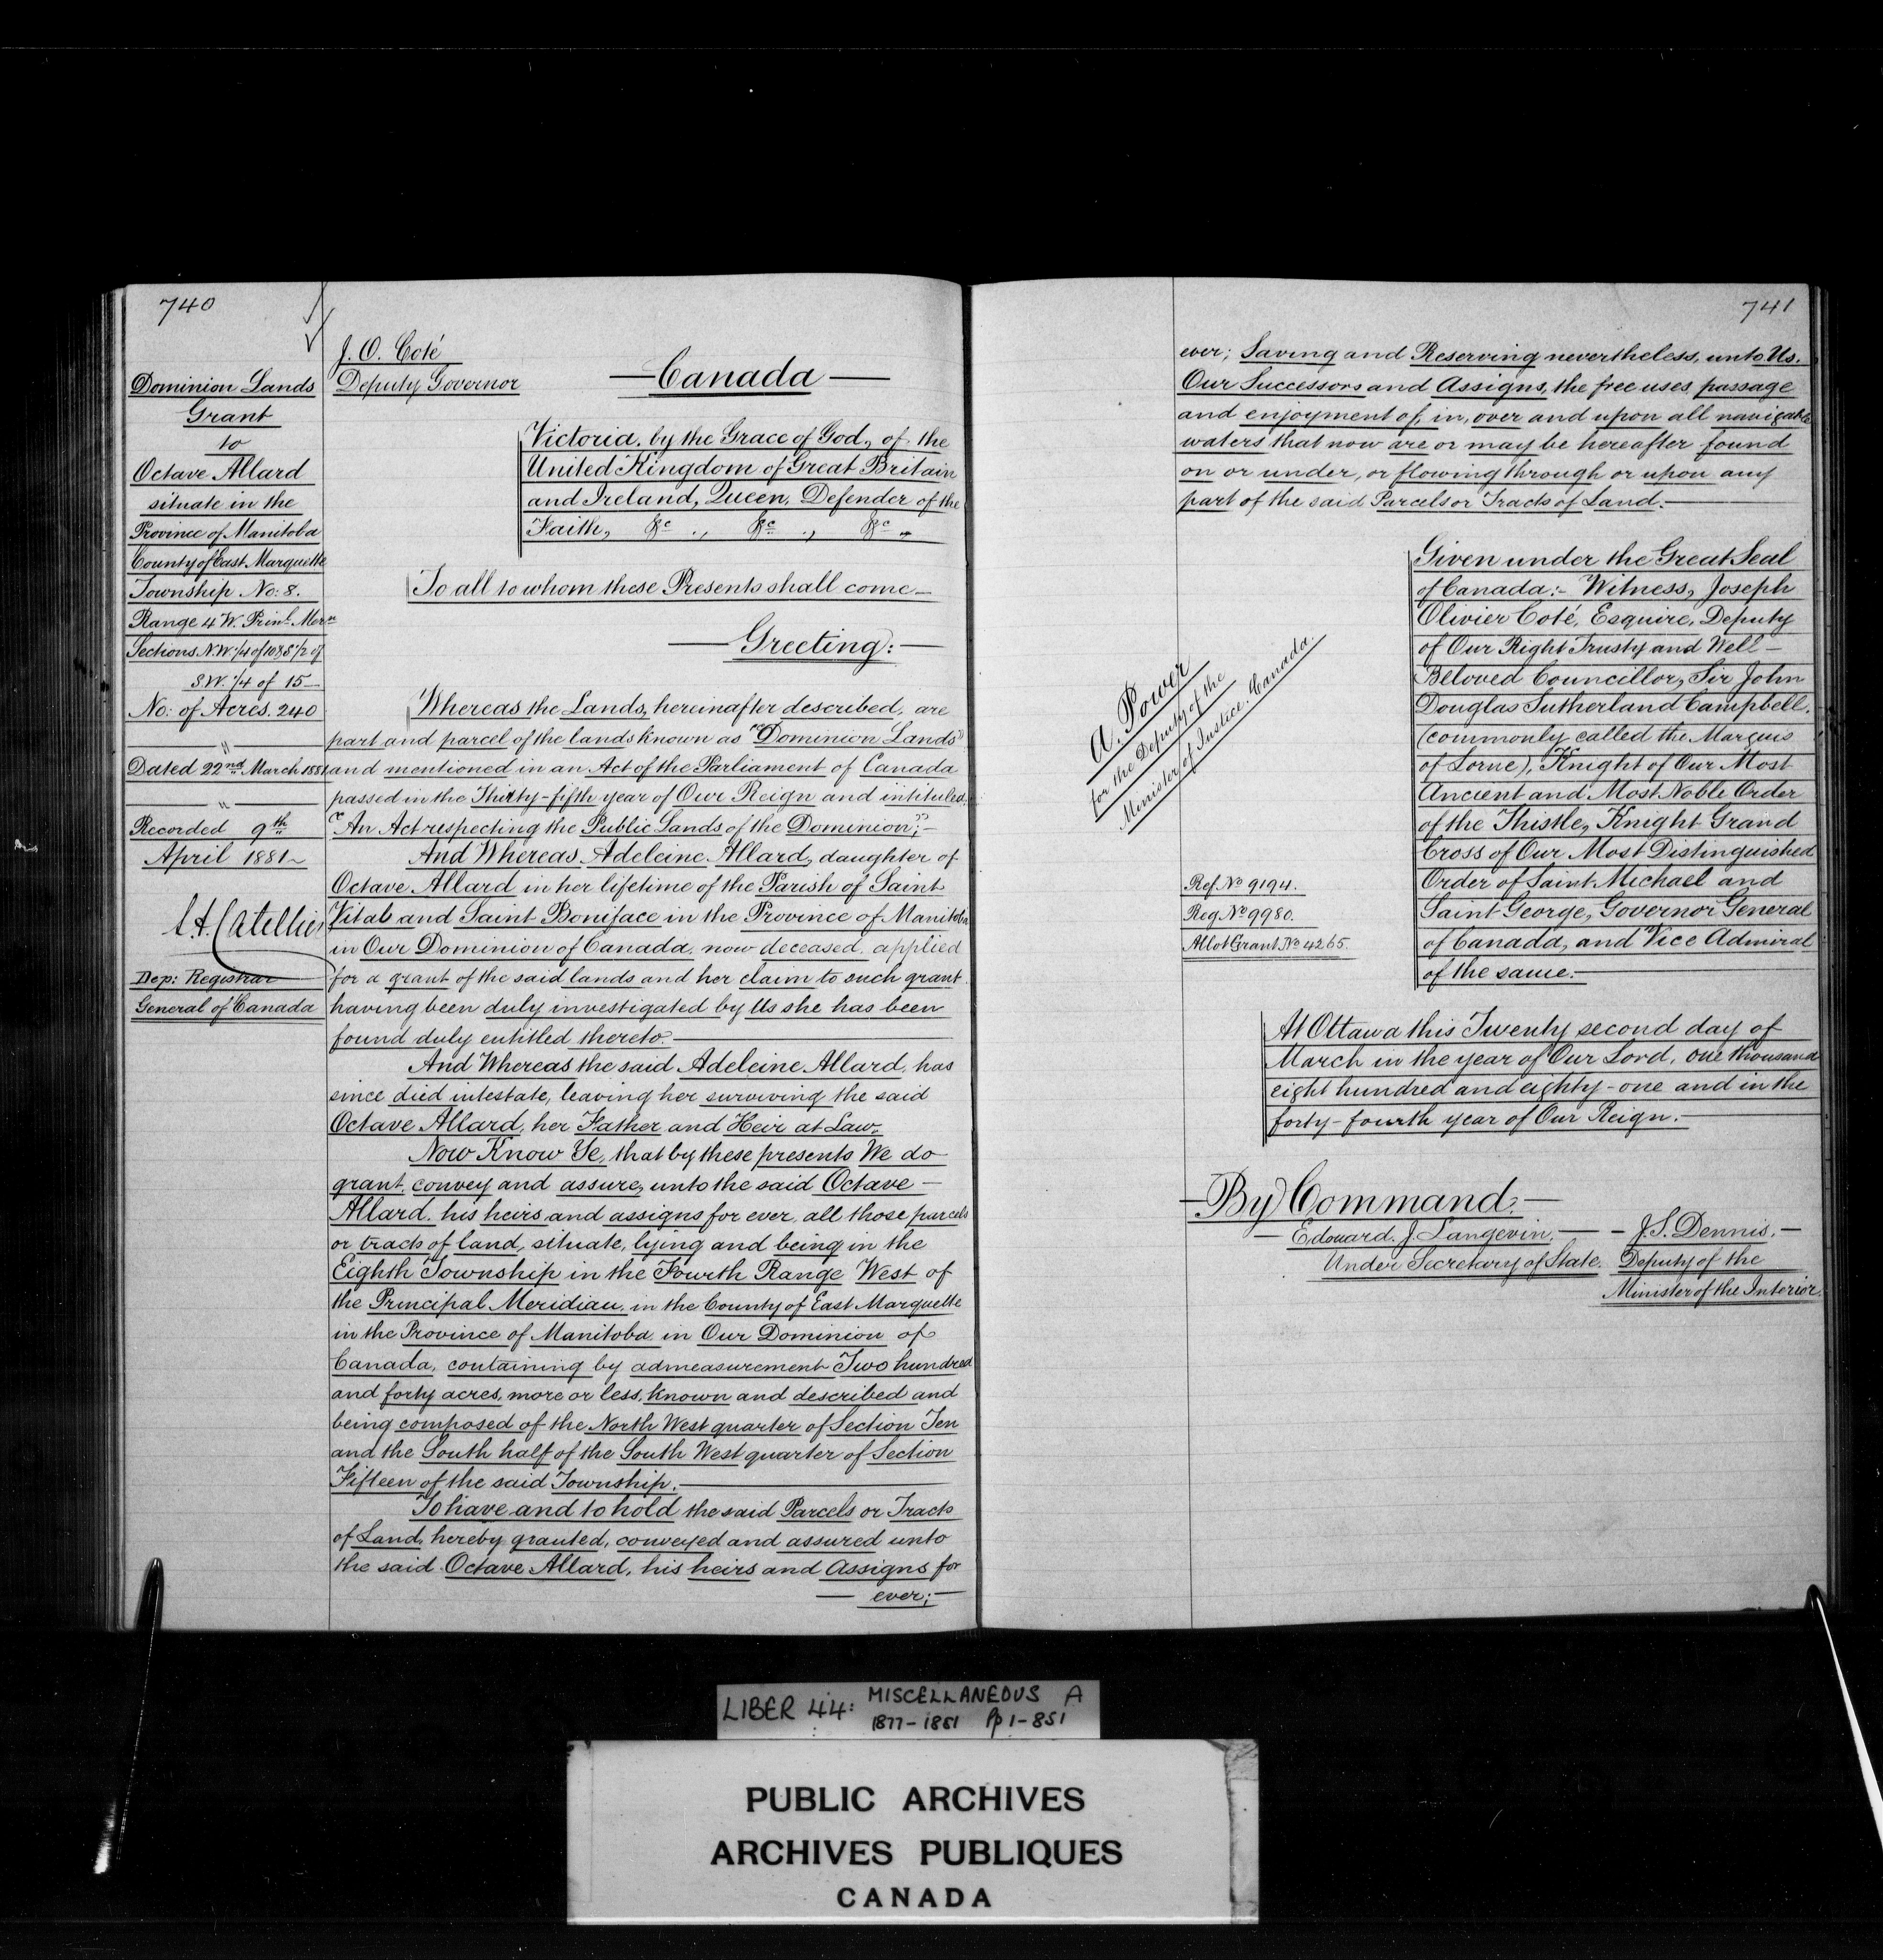 740
Dominion Lands
Grant
to
Octave Allard
situate in the
Province of Manitoba
County of East Marquette
Township No: 8.
Range 4 W. Prinl. Mern
Sections N.W. 1/4 of 10 & S 1/2 of
S.W. 1/4 of 15
No: of Acres. 240
"
Dated 22nd March 1881
"
Recorded 9th
April 1881
Dep: Registrar
General of Canada
J. O. Coté
Deputy Governor
Canada
Victoria, by the Grace of God, of the
United Kingdom of Great Britain
and Ireland, Queen, Defender of the
Faith, &c., &c., &c.,
To all to whom these Presents shall come
Greeting:
Whereas the Lands, hereinafter described, are
part and parcel of the lands known as "Dominion Lands"
and mentioned in an Act of the Parliament of Canada
passed in the Thirty-fifth year of Our Reign and intituled,
"An Act respecting the Public Lands of the Dominion";-
And Whereas Adeleine Allard, daughter of
Octave Allard in her lifetime of the Parish of Saint
Vital and Saint Boniface in the Province of Manitoba
in Our Dominion of Canada, now deceased applied
for a grant of the said lands and her claim to such grant
having been duly investigated by Us she has been
found duly entitled thereto.-
And Whereas the said Adeleine Allard, has
since died intestate, leaving her surviving the said
Octave Allard, her Father and Heir at Law.
Now Know Ye, that by these presents We do
grant, convey and assure, unto the said Octave-
Allard. his heirs and assigns for ever, all those parcels
or tracts of land, situate, lying and being in the
Eighth Township in the Fourth Range West of
the Principal Meridian, in the County of East Marquette
in the Province of Manitoba in Our Dominion of
Canada, containing by admeasurement Two hundred
and forty acres, more or less, known and described and
being composed of the North West quarter of Section Ten
and the South half of the South West quarter of Section
Fifteen of the said Township.
To have and to hold the said Parcels or Tracts
of Land, hereby granted, conveyed and assured unto
the said Octave Allard, his heirs and Assigns for
ever;-
741
ever; Saving and Reserving nevertheless, unto Us.
Our Successors and Assigns, the free uses passage
and enjoyment of, in, over and upon all navigable
waters that now are or may be hereafter found
on or under, or flowing through or upon any
part of the said Parcels or Tracts of Land.-
A. Power
for the Deputy of the
Minister of Justice. Canada.
Ref. No 9194.
Reg No 9980.
Allot Grant. No 4265.
Given under the Great Seal
of Canada:- Witness, Joseph
Olivier Coté, Esquire, Deputy
of Our Right Trusty and Well-
Beloved Councillor, Sir John
Douglas Sutherland Campbell,
(commonly called the Marquis
of Lorne), Knight of Our Most
Ancient and Most Noble Order
of the Thistle, Knight Grand
Cross of Our Most Distinguished
Order of Saint Michael and
Saint George, Governor General
of Canada, and Vice Admiral
of the same.-
At Ottawa this Twenty second day of
March in the year of Our Lord, one thousand
eight hundred and eighty-one and in the
forty-fourth year of Our Reign.-
By Command.
Edouard. J. Langevin. J. S. Dennis.
Under Secretary of State. Deputy of the
Minister of the Interior
LIBER 44: MISCELLANEOUS A
1877-1881 Pp 1-851
PUBLIC ARCHIVES
ARCHIVES PUBLIQUES
CANADA